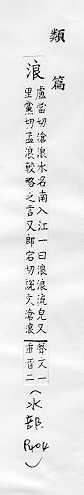 類篇
浪
盧當切滄浪水名南入江一曰浪浪流皃又
里黨切孟浪較略之言又郎宕切說文滄浪
文一
重音二
(水部. P404)